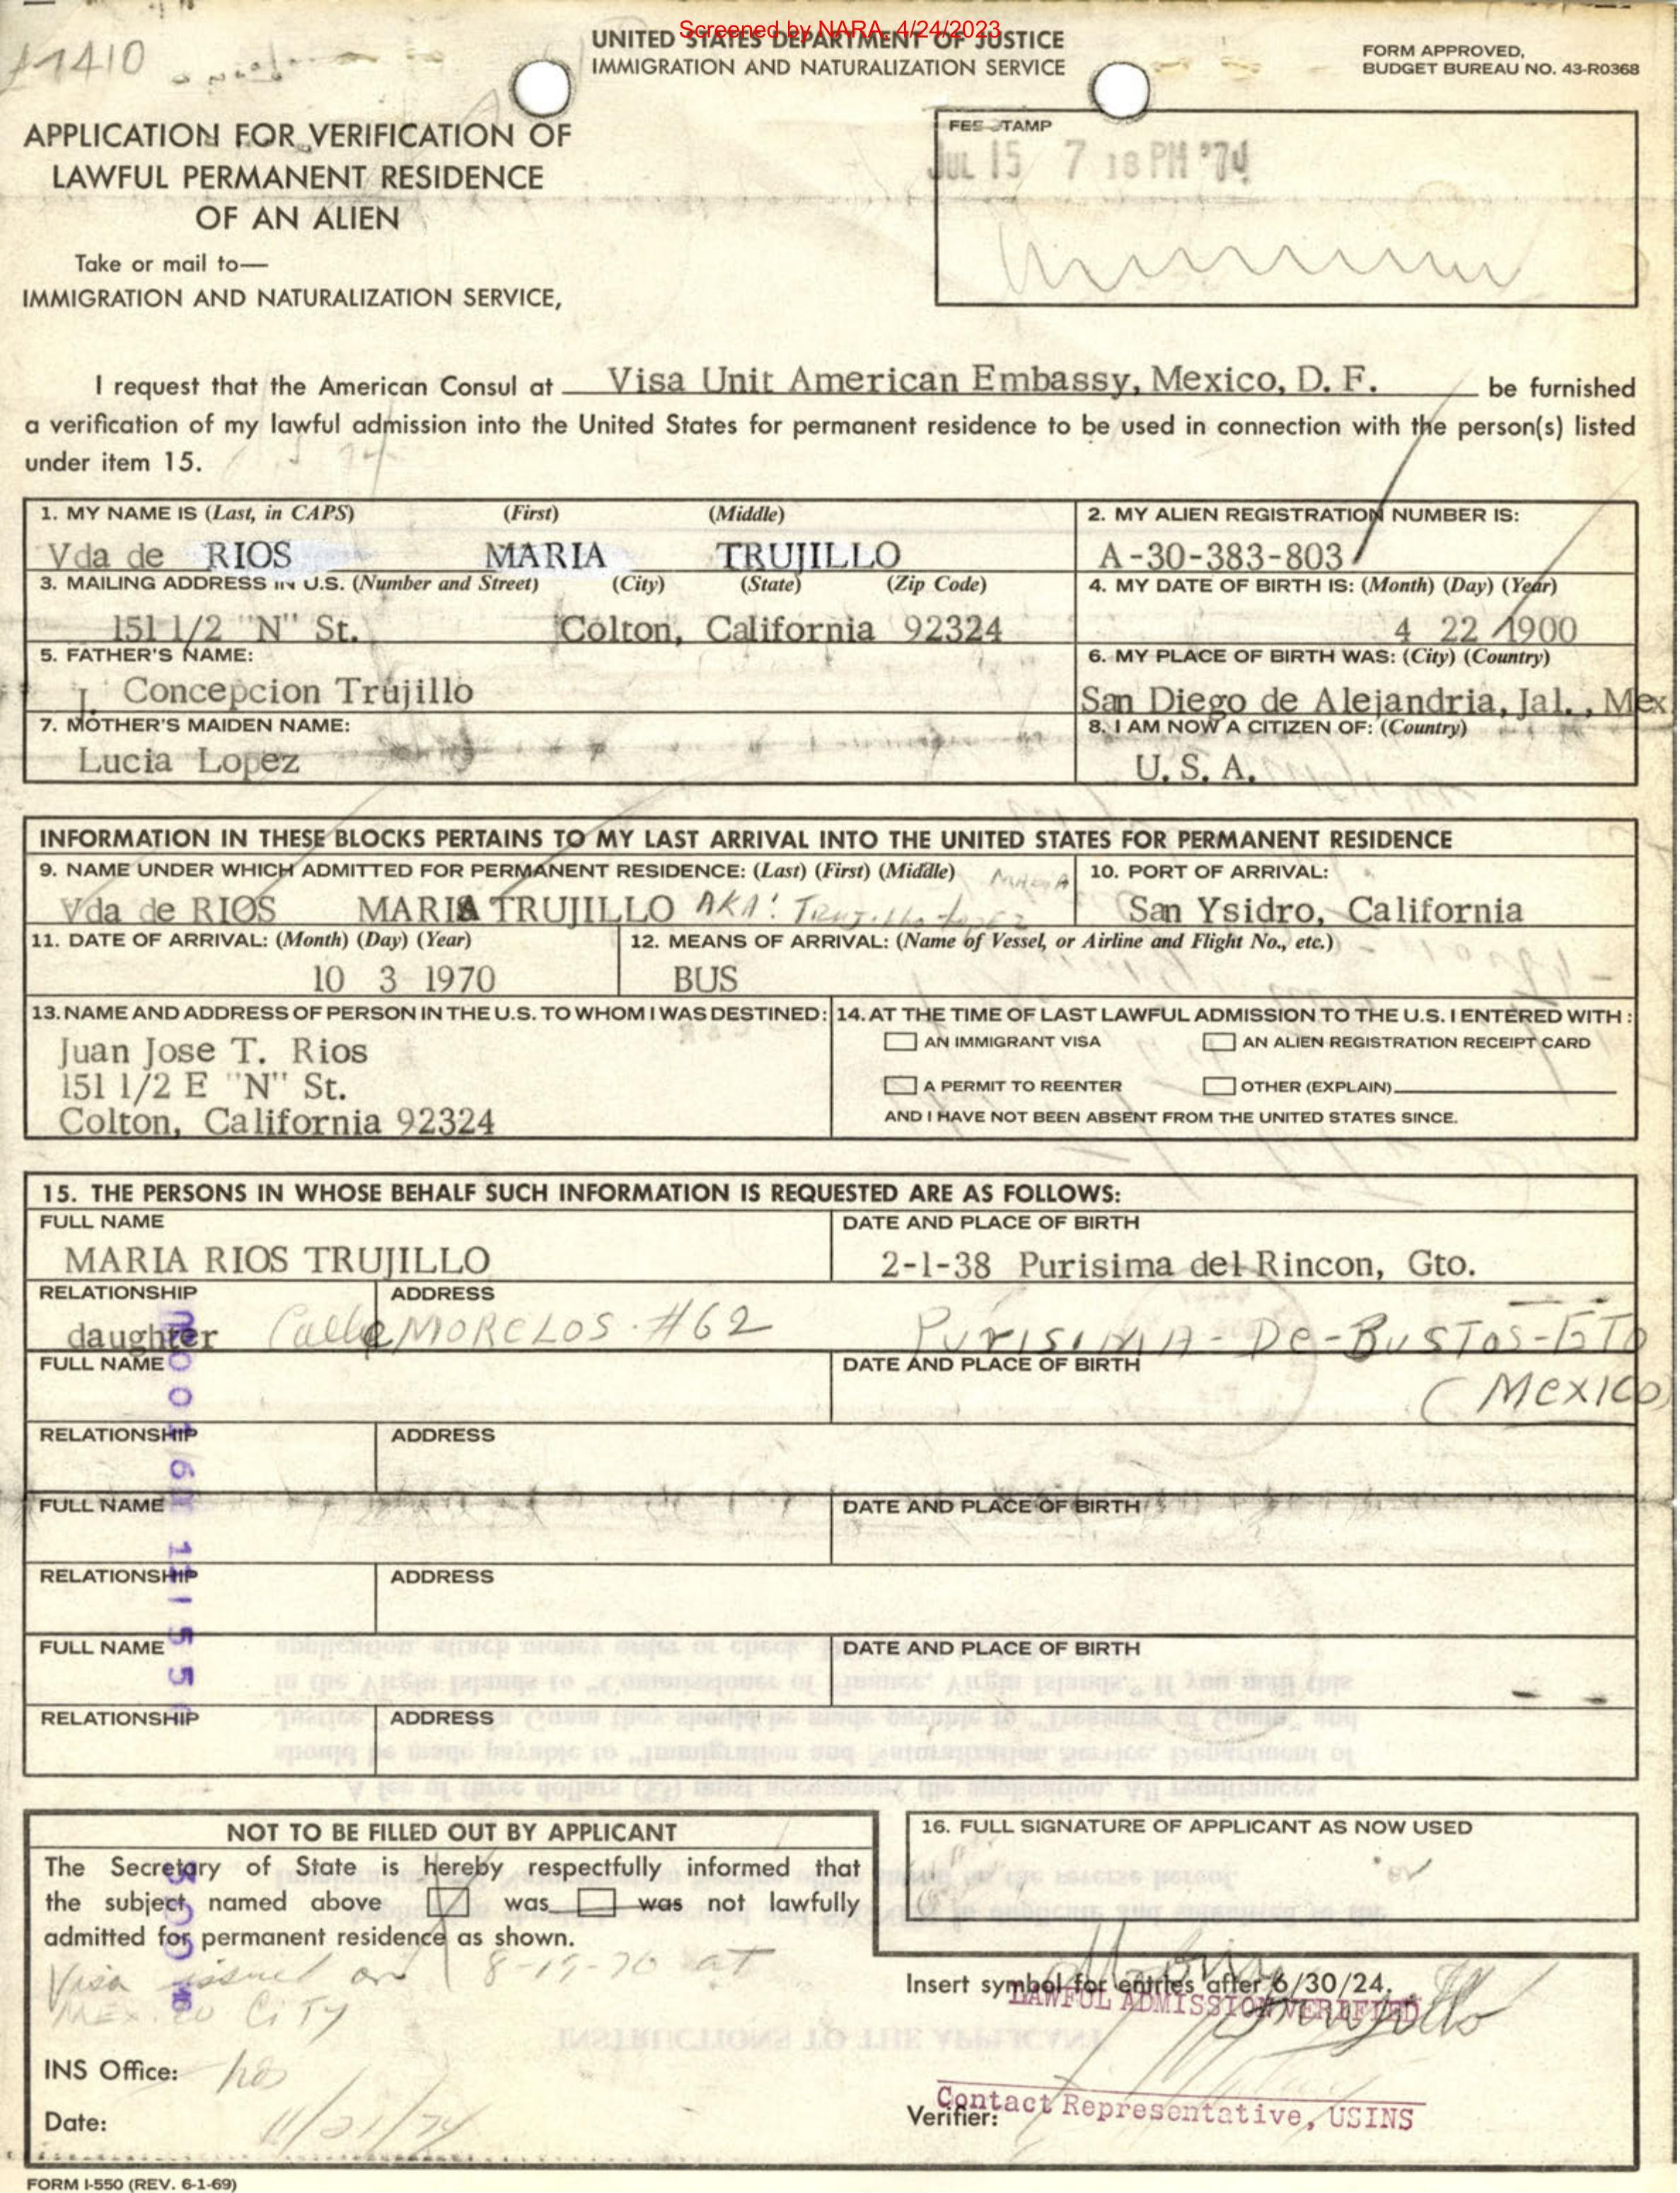 Screened by NARA, 4/24/2023
1410
UNITED STATES DEPARTMENT OF JUSTICE
IMMIGRATION AND NATURALIZATION SERVICE
FORM APPROVED,
BUDGET BUREAU NO. 43-R0368
APPLICATION FOR VERIFICATION OF
LAWFUL PERMANENT RESIDENCE
OF AN ALIEN
Take or mail to—
IMMIGRATION AND NATURALIZATION SERVICE,
FEE STAMP
JUL 15 7 18 PM '74
I request that the American Consul at Visa Unit American Embassy, Mexico, D. F. be furnished
a verification of my lawful admission into the United States for permanent residence to be used in connection with the person(s) listed
under item 15.
1. MY NAME IS (Last, in CAPS) (First) (Middle)
Vda de RIOS MARIA TRUJILLO
2. MY ALIEN REGISTRATION NUMBER IS:
A-30-383-803
3. MAILING ADDRESS IN U.S. (Number and Street) (City) (State) (Zip Code)
151 1/2 "N" St. Colton, California 92324
4. MY DATE OF BIRTH IS: (Month) (Day) (Year)
4 22 1900
5. FATHER'S NAME:
J. Concepcion Trujillo
6. MY PLACE OF BIRTH WAS: (City) (Country)
San Diego de Alejandria, Jal., Mex
7. MOTHER'S MAIDEN NAME:
Lucia Lopez
8. I AM NOW A CITIZEN OF: (Country)
U. S. A.
INFORMATION IN THESE BLOCKS PERTAINS TO MY LAST ARRIVAL INTO THE UNITED STATES FOR PERMANENT RESIDENCE
9. NAME UNDER WHICH ADMITTED FOR PERMANENT RESIDENCE: (Last) (First) (Middle)
Vda de RIOS MARIA TRUJILLO AKA: Trujillo-Lopez MARIA
10. PORT OF ARRIVAL:
San Ysidro, California
11. DATE OF ARRIVAL: (Month) (Day) (Year)
10 3 1970
12. MEANS OF ARRIVAL: (Name of Vessel, or Airline and Flight No., etc.)
BUS
13. NAME AND ADDRESS OF PERSON IN THE U.S. TO WHOM I WAS DESTINED:
Juan Jose T. Rios
151 1/2 E "N" St.
Colton, California 92324
14. AT THE TIME OF LAST LAWFUL ADMISSION TO THE U.S. I ENTERED WITH:
AN IMMIGRANT VISA AN ALIEN REGISTRATION RECEIPT CARD
A PERMIT TO REENTER OTHER (EXPLAIN)
AND I HAVE NOT BEEN ABSENT FROM THE UNITED STATES SINCE.
15. THE PERSONS IN WHOSE BEHALF SUCH INFORMATION IS REQUESTED ARE AS FOLLOWS:
FULL NAME DATE AND PLACE OF BIRTH
MARIA RIOS TRUJILLO 2-1-38 Purisima del Rincon, Gto.
RELATIONSHIP ADDRESS
daughter Calle MORELOS #62 PURISIMA-De-BUSTOS-GTO
(MEXICO)
FULL NAME DATE AND PLACE OF BIRTH
RELATIONSHIP ADDRESS
FULL NAME DATE AND PLACE OF BIRTH
RELATIONSHIP ADDRESS
FULL NAME DATE AND PLACE OF BIRTH
RELATIONSHIP ADDRESS
NOT TO BE FILLED OUT BY APPLICANT
The Secretary of State is hereby respectfully informed that
the subject named above was was not lawfully
admitted for permanent residence as shown.
Visa issued on 8-19-70 at
MEXICO CITY
INS Office:
Date: 11/21/74
16. FULL SIGNATURE OF APPLICANT AS NOW USED
Maria Trujillo
Insert symbol for entries after 6/30/24.
LAWFUL ADMISSION VERIFIED
Contact Representative, USINS
Verifier:
FORM I-550 (REV. 6-1-69)